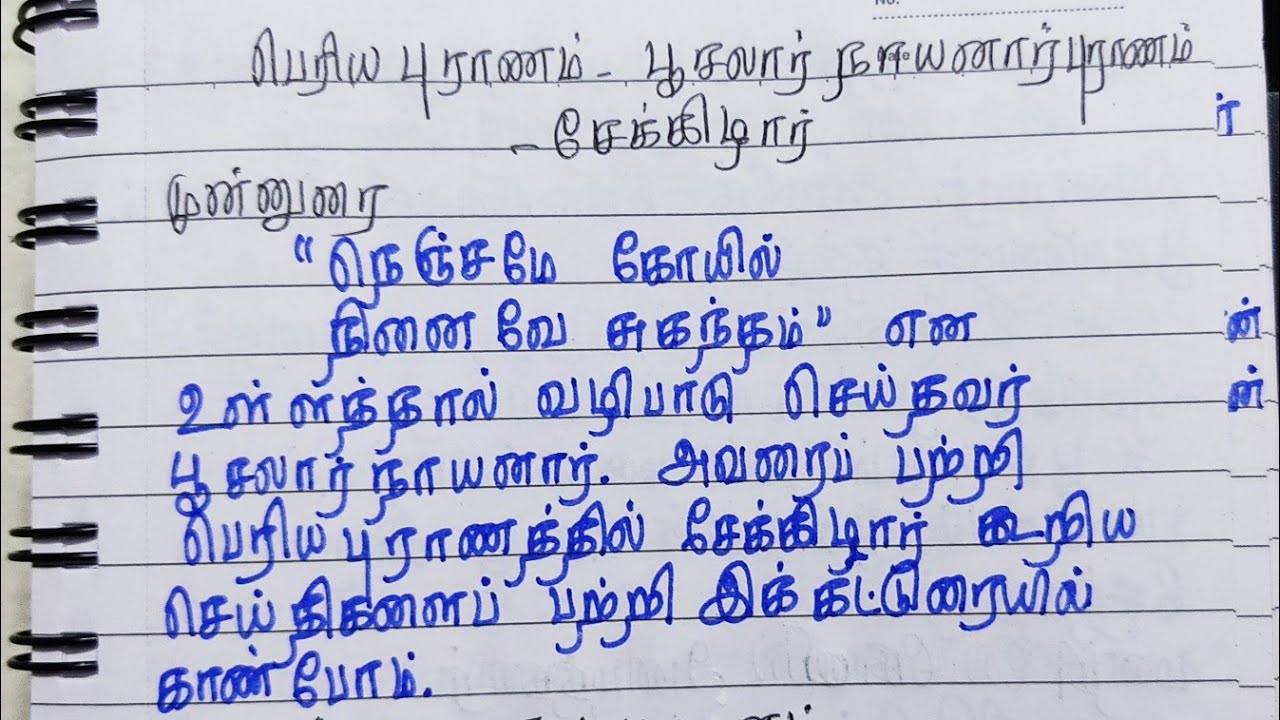 பெரிய புராணம் - பூசலார் நாயனார்புராணம்
- சேக்கிழார்
ர்
முன்னுரை
"நெஞ்சமே கோயில்
நினைவே சுகந்தம்" என
ன்
உள்ளத்தால் வழிபாடு செய்தவர்
ன்
பூசலார்நாயனார். அவரைப் பற்றி
பெரியபுராணத்தில் சேக்கிழார் கூறிய
செய்திகளைப் பற்றி இக்கட்டுரையில்
காண்போம்.